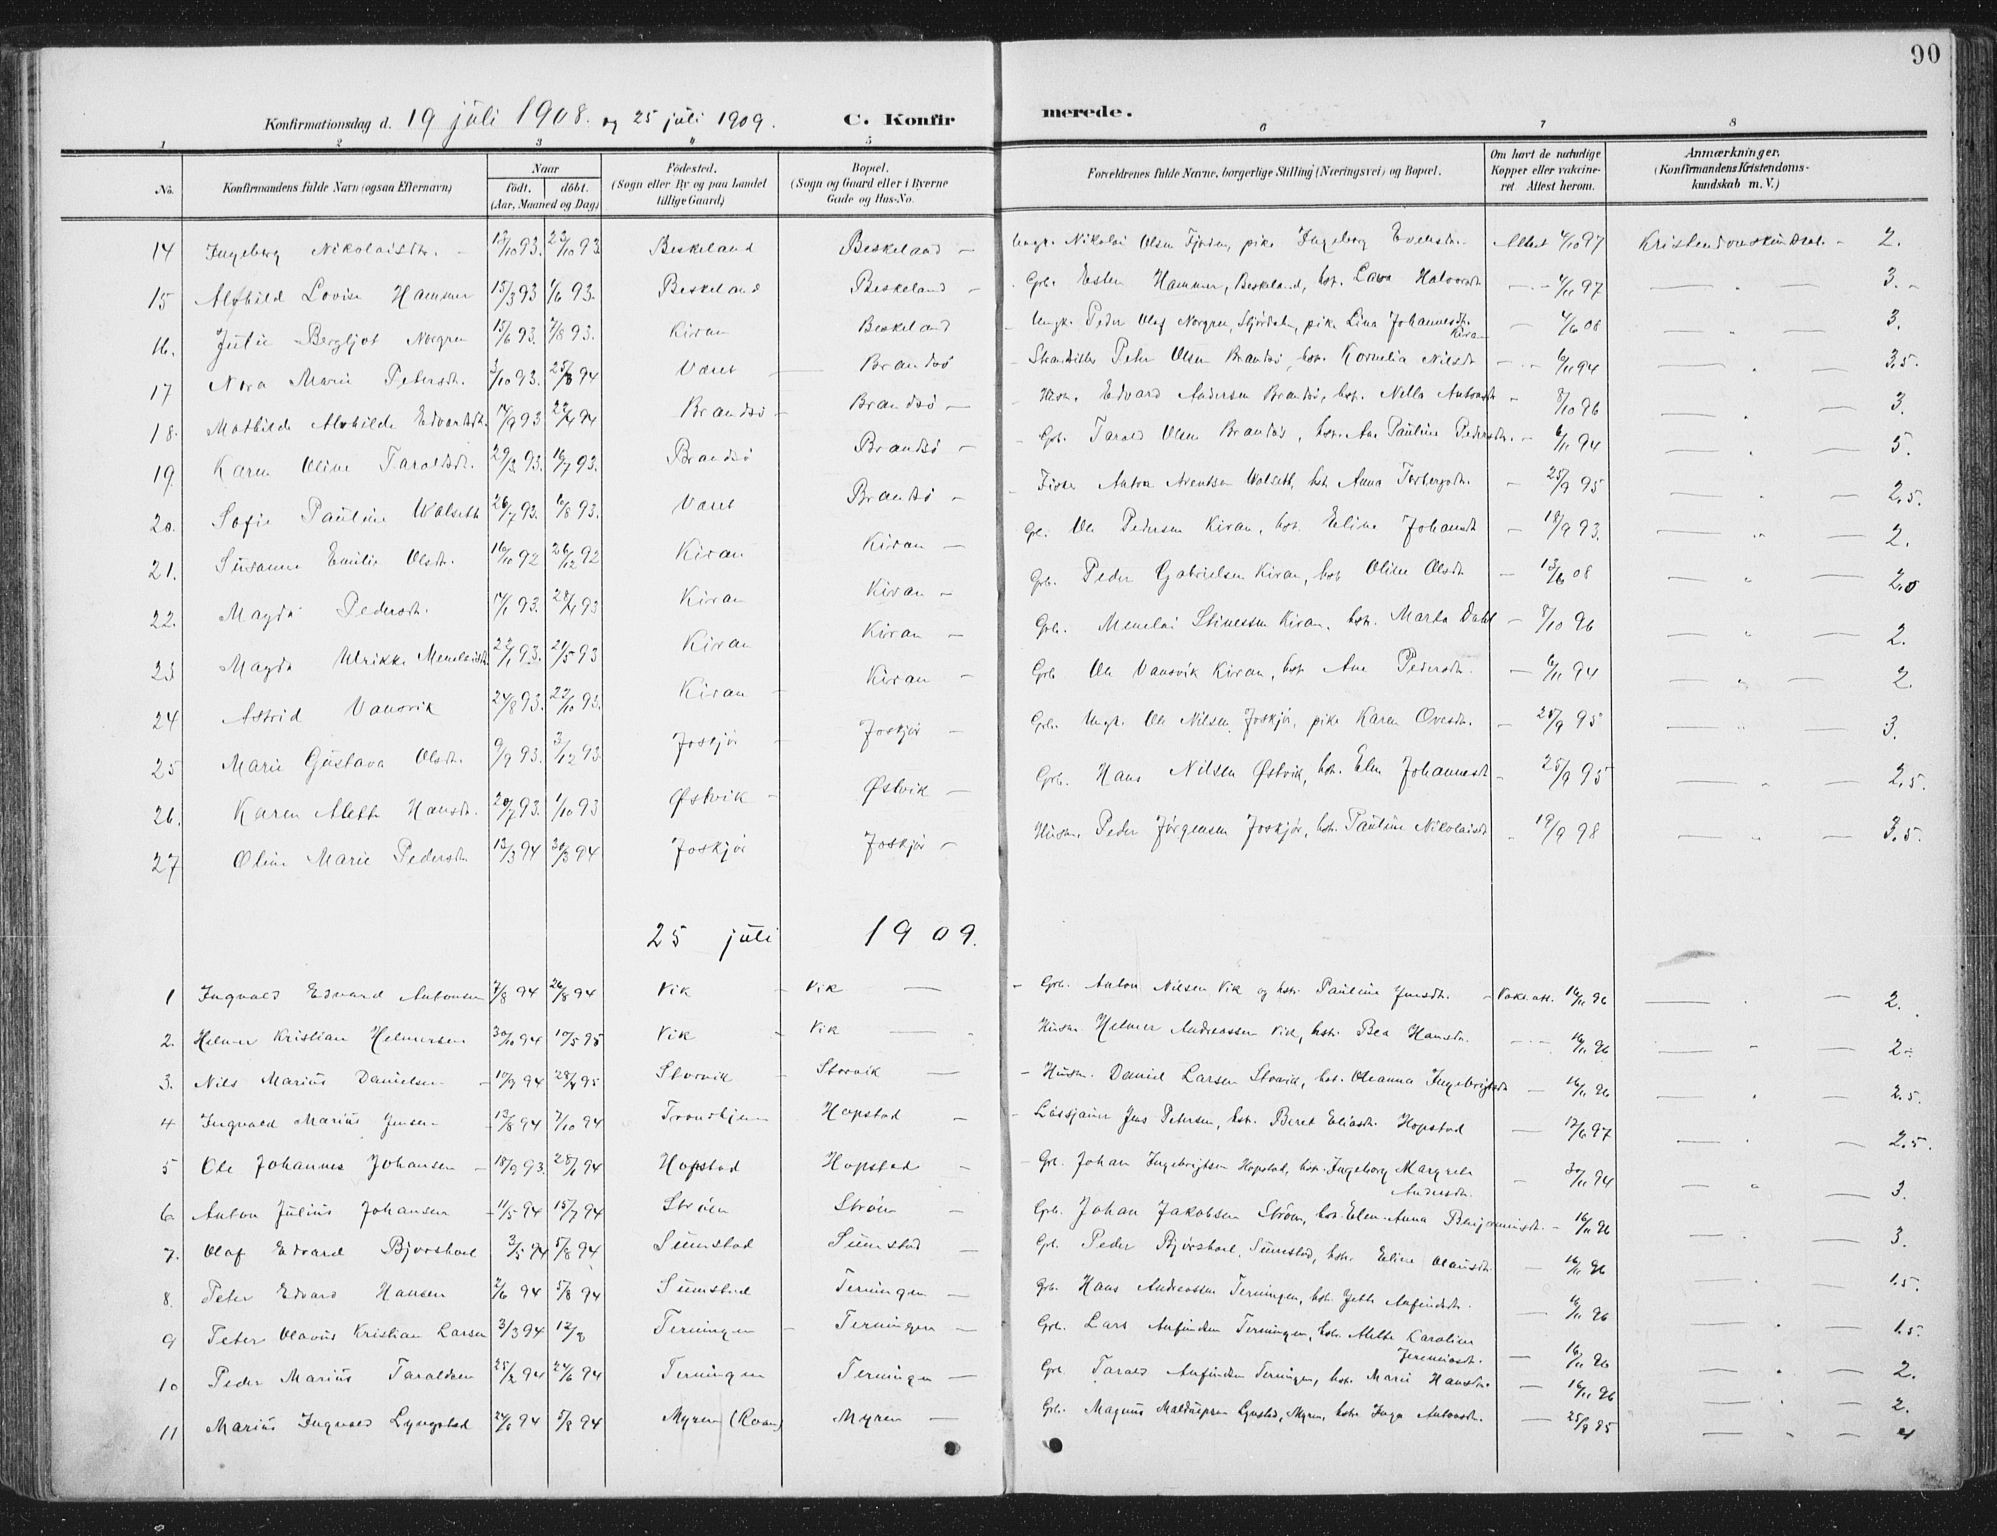 90
Konfirmationsdag d. 19 juli 1908. og 25 juli 1909. C. Konfir merede.
1 2 3 4 5 6 7 8
No. Konfirmandens fulde Navn (ogsaa Efternavn) Naar født. døbt. (Aar, Maaned og Dag) Fødested. (Sogn eller By og paa Landet tillige Gaard) Bopæl. (Sogn og Gaard eller i Byerne Gade og Hus-No. Forældrenes fulde Navne, borgerlige Stilling (Næringsvei) og Bopæl. Om havt de naturlige Kopper eller vakcineret Attest herom. Anmærkninger. (Konfirmandens Kristendomskundskab m. V.)
14 Ingeborg Nikolaisdtr. - 13/10 93. 23/10 93 Beskeland Beskeland - Ungk. Nikolai Olsen Fjorden, pike Ingeborg Attest 4/10 97 Kristendomskundsk. - 2.
15 Alvhild Lovise Hammer 15/3 93 1/6 93. Beskeland Beskeland - Grb. Esten Hammer, Beskeland, hst. Lava Halvorsdt - - 4/11 97 3. -
16. Julie Bergljot Norgren 15/6 93. 7/8 93. Kiran Beskeland - Ungk. Peder Olaf Norgren, Stjørdalen, pike Lina Johannesdt. Kiran - 4/6 08 3.
17 Nora Marie Petersdt. 3/10 93. 25/3 94 Været Brandsø - Peter Olsen Brandsø, hst. Kornelia Nilsdt - - 6/11 94 3.5.
18. Mathilde Alvhilde Edvardsdt. 14/9 93 22/4 94 Brandsø - Brandsø - Husm. Edvard Andersen Brandsø, hst. Nella Antonsdt - 8/10 96 3.
19. Karen Oline Taraldsdt. 29/3 93. 16/7 93. Brandsø Brandsø - Grb. Tarald Olsen Brandsø, hst. Ane Pauline Pedersdt. - 6/11 94 5.
20. Sofie Pauline Walseth 26/7 93. 6/8 93. Været Brandsø - Fisker Anton Arentsen Walseth, hst. Anna Torbergsdt. - 25/9 95 2.5.
21. Susanne Emilie Olsdt. 16/10 92 26/12 92 Kiran Kiran - Gr. Ole Pedersen Kiran, hst. Eline Johannsdt - 18/9 93. 2.
22. Magda Pedersdt. 17/1 93. 23/4 93 Kiran Kiran - Grb. Peder Gabrielsen Kiran, hst Oline Olsdt - 13/6 08 2.5
23 Magda Ulrikke Menelaisdt 22/1 93. 21/5 93 Kiran Kiran - Grb. Menelai Stinessen Kiran, hst. Marta Dahl - 8/10 96 2.
24 Astrid Vansvik 24/8 93. 22/10 93. Kiran - Kiran - Grb. Ole Vansvik Kiran, hst Ane Pedersdt. - 6/11 94 2.
25 Marie Gustava Olsdt. 9/9 93. 3/12 93. Joskjør - Joskjør - Grb. Ungk. Ole Nilsen Joskjør, pike Karen Ovesdt. - 25/9 95 3.
26. Karen Aleth Hansdt. 20/7 93. 1/10 93 Østvik - Østvik - Grb. Hans Nilsen Østvik, hst. Elen Johannesdt - 25/9 95 2.5.
27 Oline Marie Pedersdt 13/3 94 30/3 94 Joskjør Joskjør - Husm. Peder Jørgensen Joskjør, hst. Pauline Nikolaisdt - 19/9 98 3.5.
25 juli 1909.
1 Ingvald Edvard Antonsen 7/8 94 26/8 94 Vik - Vik - - Grb. Anton Nilsen Vik og hst. Pauline Jensdt. - Vakc. att. 16/11 96 2.
2. Helmer Kristian Helmersen 30/10 94 10/5 95 Vik - Vik - Husm Helmer Andreassen Vik, hst. Bea Hansdt. - - 16/11 96 2 -
3. Nils Marius Danielsen - 10/9 94 28/4 95 Storvik - Storvik - - Husm. Daniel Larsen Storvik, hst. Oleanna Ingebrigtsdt - 16/11 96 2.5.
4 Ingvald Marius Jensen - 13/8 94 7/10 94 Trondhjem Hopstad - - Jens Petersen, hst. Beret Eliasdt. Hopstad - 12/6 97 2.5.
5 Ole Johannes Johansen - 18/9 93. 28/1 94 Hopstad Hopstad - - Gr. Johan Ingebrigtsen Hopstad, hst. Ingeborg Margrete Andersdt. - 30/11 94 3.
6. Anton Julius Johansen - 11/5 94 15/7 94 Strøm Strøm - Grb. Johan Jakobsen Strøm, hst. Elen Anna Benjaminsdt. - 16/11 96 3.
7. Olaf Edvard Bjørshol 3/5 94 5/8 94 Sumstad Sumstad - Grb. Peder Bjørshol, Sumstad, hst. Eline Olausdt. - 16/11 96 1.5.
8. Peter Edvard Hansen 2/6 94 5/8 94 Sumstad Terningen - Grb. Hans Andreassen Terningen, hst. Jette Anfindsdt. 16/11 96 1.5.
9 Peter Olavus Kristian Larsen 3/3 94 12/8 Terningen - Terningen - Grb. Lars Anfindsen Terningen, hst. Alette Karoline Jeremiasdt. - 16/11 96 2.
10 Peder Marius Taraldsen 25/2 94 24/6 94 Terningen Terningen - Grb. Tarald Anfindsen Terningen, hst. Marie Hansdt. - 16/11 96 2.
11 Marius Ingvald Lyngstad 24/6 94 5/8 94 Myren (Roan) Myren - Grb. Magnus Lyngstad, Myren, hst. Inga Antonsdt. - 25/9 95